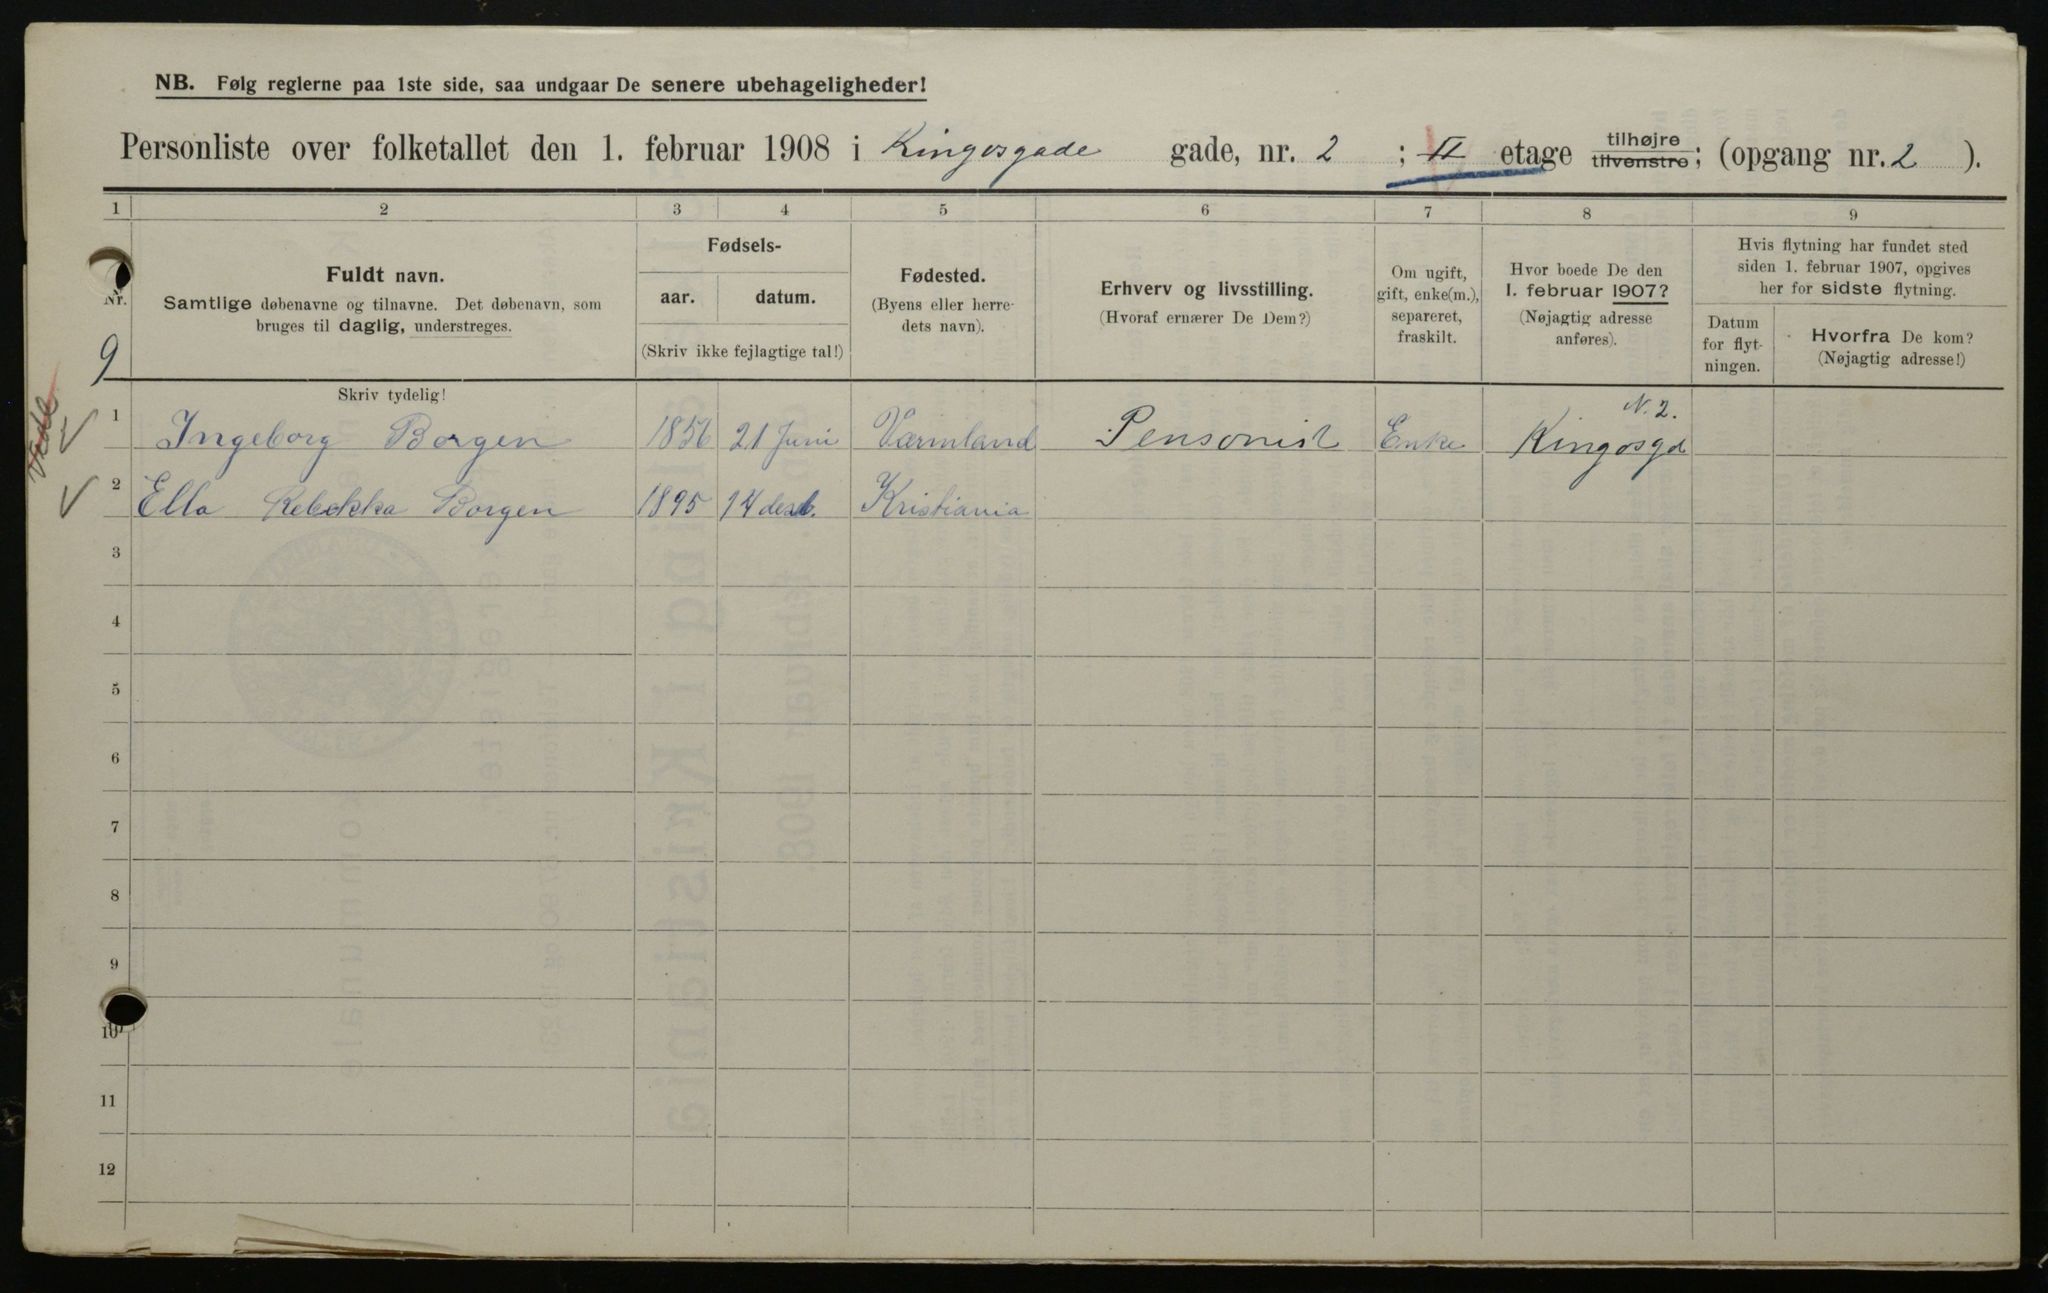 NB. Følg reglerne paa 1ste side, saa undgaar De senere ubehageligheder!
Personliste over folketallet den 1. februar 1908 i Kingosgade gade, nr. 2 ; II etage tilhøjre tilvenstre; (opgang nr. 2 ).
1 2 3 4 5 6 7 8 9
Nr.
Fuldt navn.
Samtlige døbenavne og tilnavne. Det døbenavn, som
bruges til daglig, understreges.
Fødsels-
aar. datum.
(Skriv ikke fejlagtige tal!)
Fødested.
(Byens eller herre-
dets navn).
Erhverv og livsstilling.
(Hvoraf ernærer De Dem?)
Om ugift,
gift, enke(m.),
separeret,
fraskilt.
Hvor boede De den
1. februar 1907?
(Nøjagtig adresse
anføres).
Hvis flytning har fundet sted
siden 1. februar 1907, opgives
her for sidste flytning.
Datum
for flyt-
ningen.
Hvorfra De kom?
(Nøjagtig adresse!)
9
Skriv tydelig!
N. 2.
1 Ingeborg Borgen 1856 21 Juni Värmland Pensonist Enke Kingosgd
2 Ella Rebekka Borgen 1895 14 desb. Kristiania
3
4
5
6
7
8
9
10
11
12